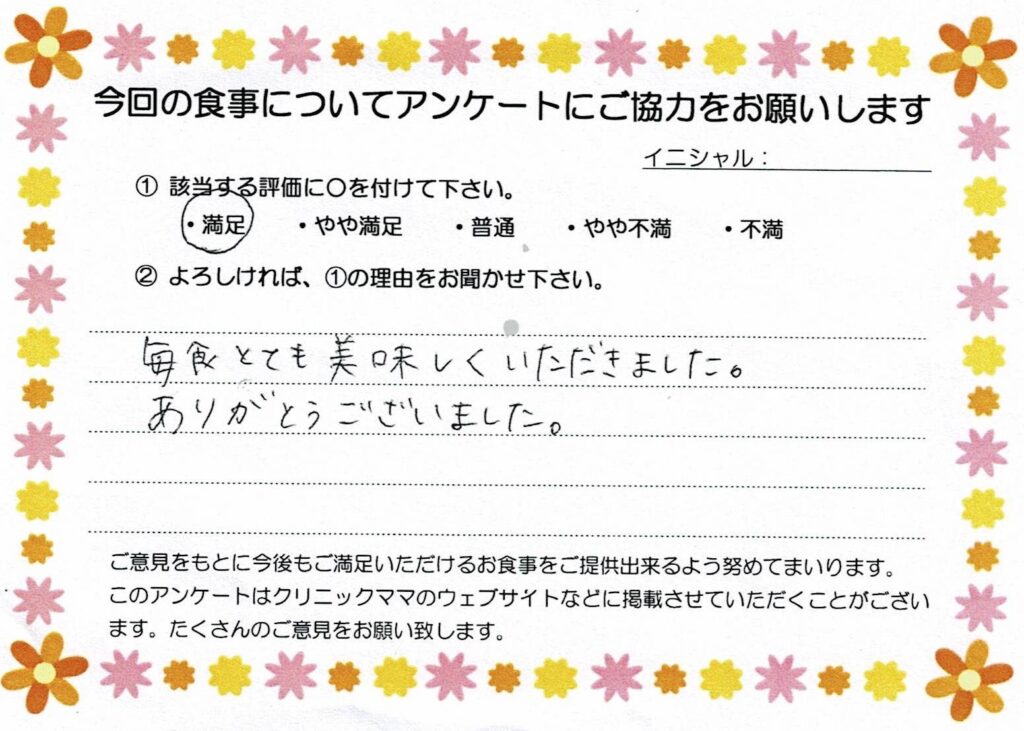 今回の食事についてアンケートにご協力をお願いします
イニシャル：
① 該当する評価に〇を付けて下さい。
・満足 ・やや満足 ・普通 ・やや不満 ・不満
② よろしければ、①の理由をお聞かせ下さい。
毎食とても美味しくいただきました。
ありがとうございました。
ご意見をもとに今後もご満足いただけるお食事をご提供出来るよう努めてまいります。
このアンケートはクリニックママのウェブサイトなどに掲載させていただくことがござい
ます。たくさんのご意見をお願い致します。